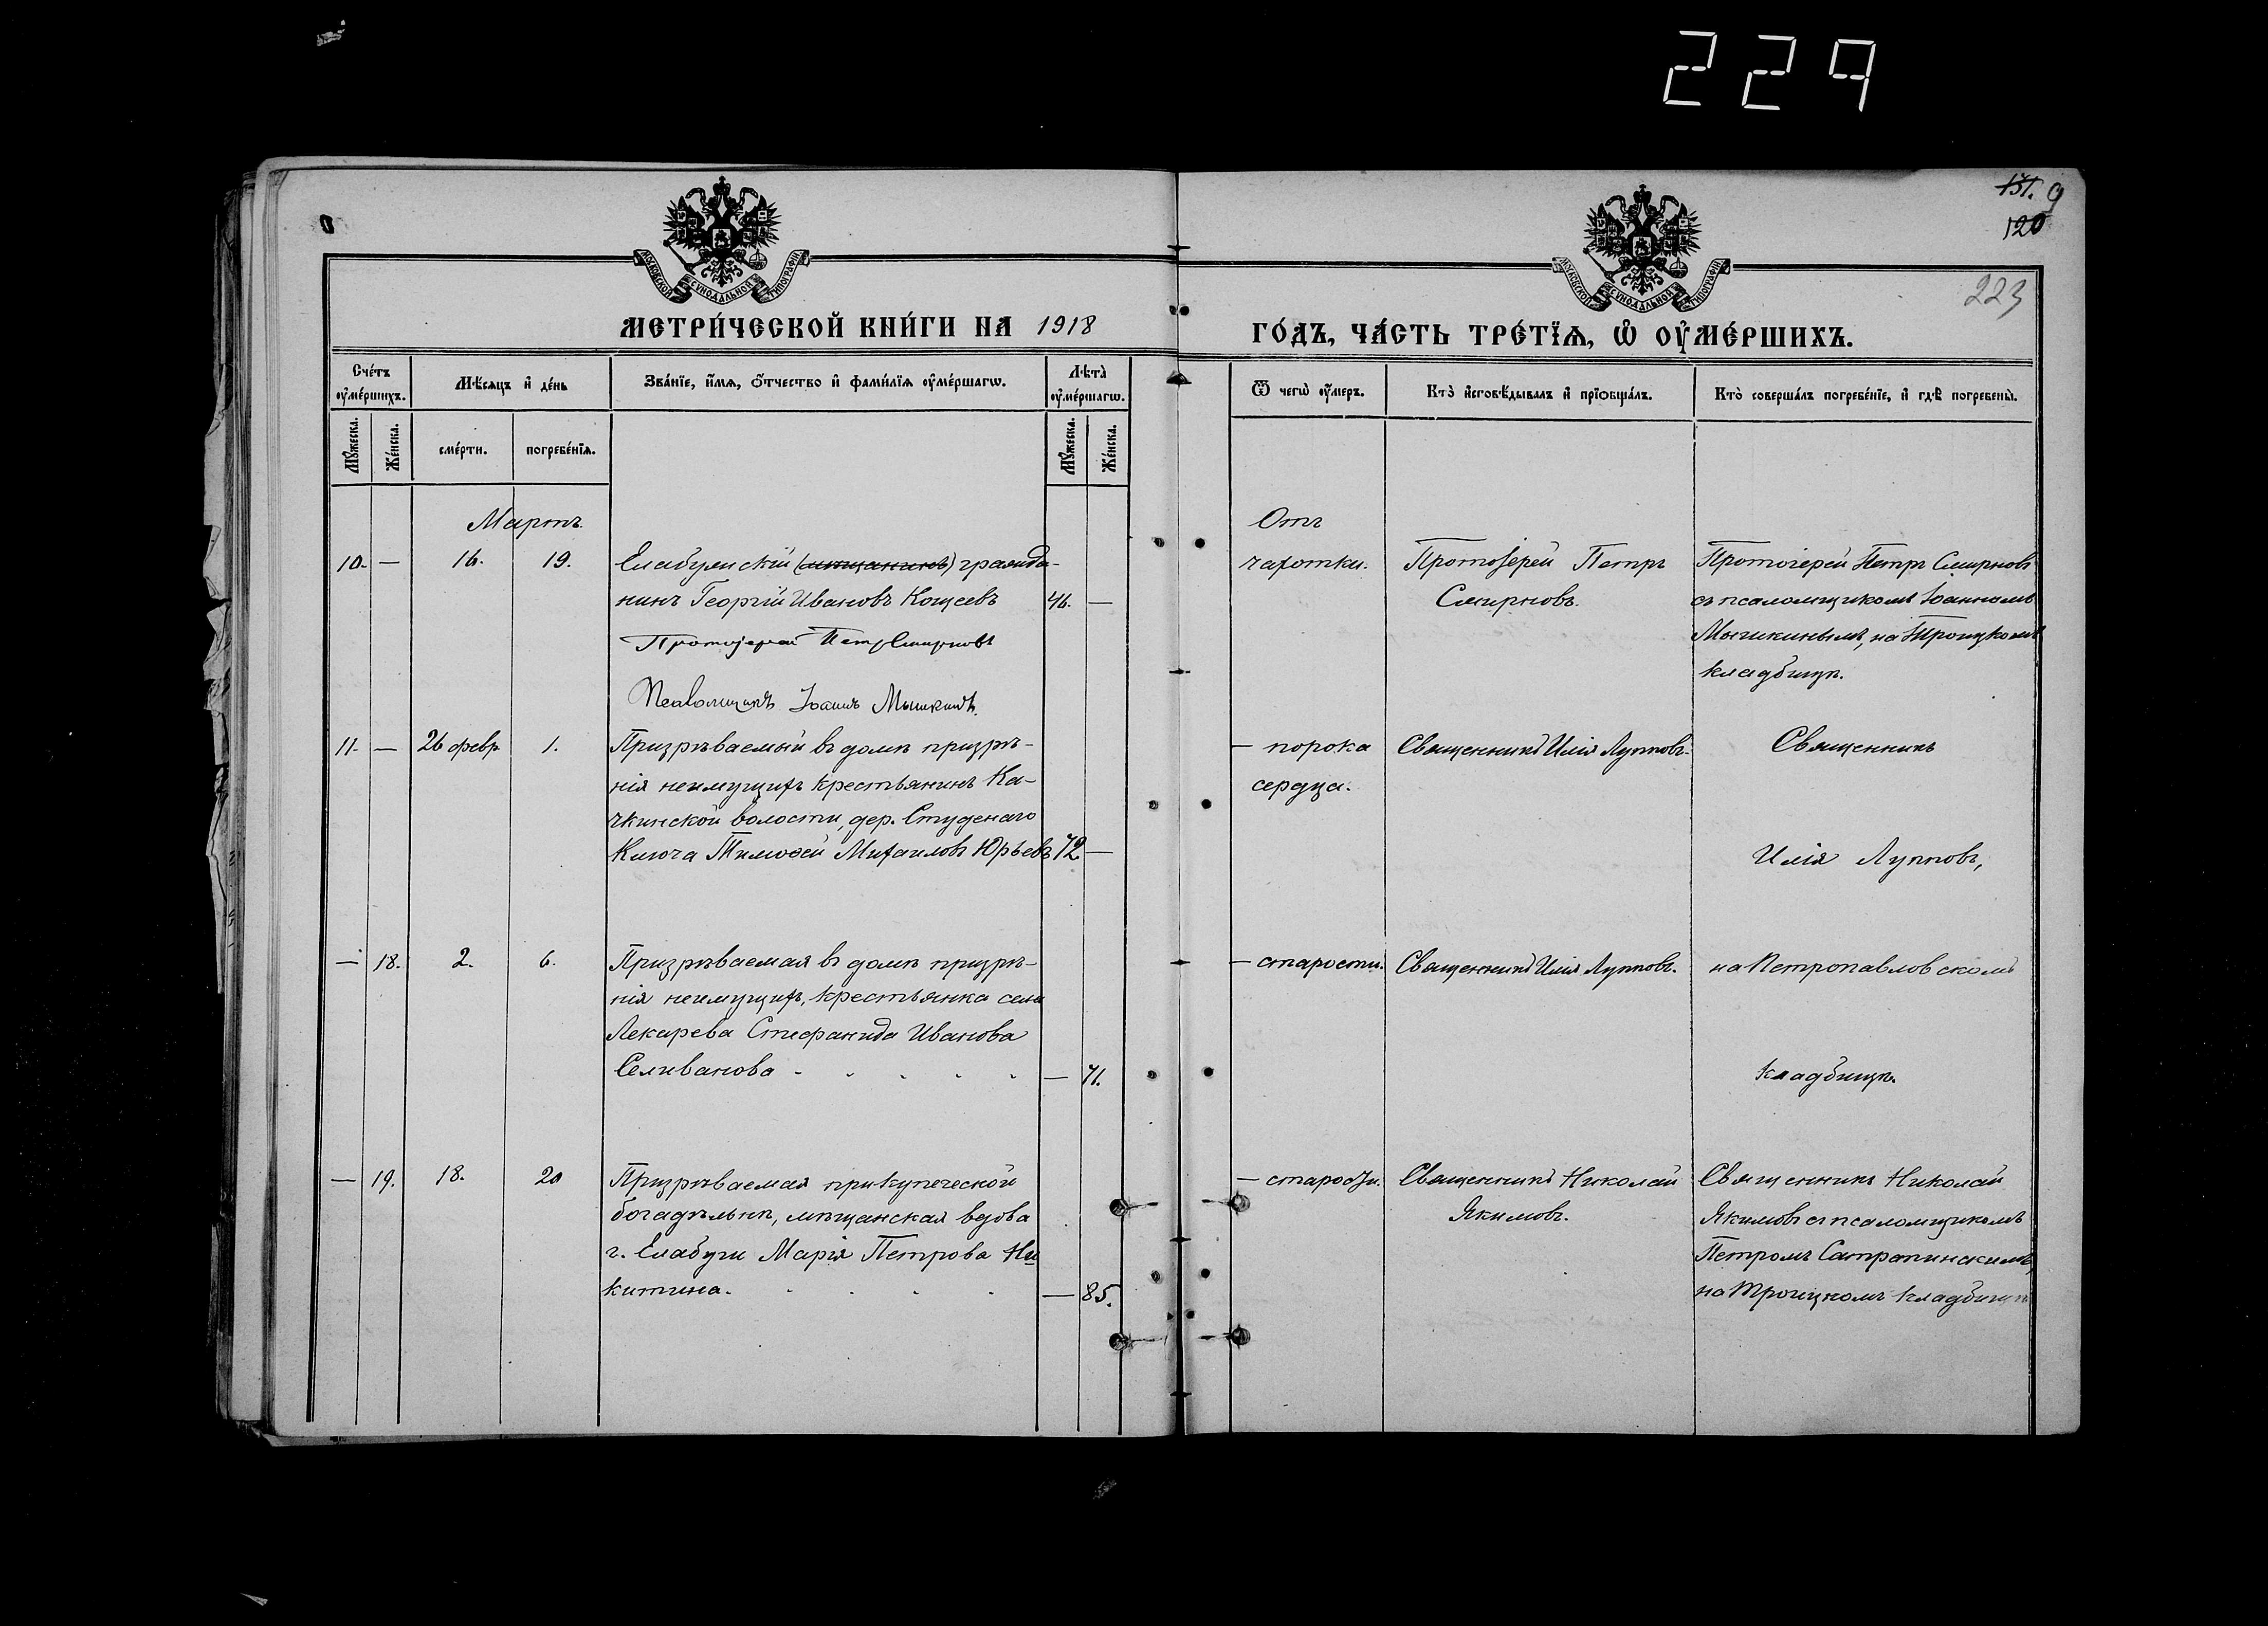 229
131. 9
120
223
МОСКОВСКОЙ СУНОДАЛЬНОЙ ТИПОГРАФІИ
МОСКОВСКОЙ СУНОДАЛЬНОЙ ТИПОГРАФІИ
МЕТРИ́ЧЕСКОЙ КНИ́ГИ НА 1918
ГО́ДЪ, ЧА́СТЬ ТРЕ́ТЇѦ, Ѡ҆ ОУ҆МЕ́РШИХЪ.
Сче́тъ оу҆ме́ршихъ.
Мѣ́сяцъ и҆ де́нь
Зва́нїе, и҆́мѧ, ѻ҆́тчество и҆ фами́лїѧ оу҆ме́ршагѡ.
Лѣта̀ оу҆ме́ршагѡ.
Ѿ чегѡ̀ оу҆́меръ.
Кто̀ и҆сповѣ́дывалъ и҆ прїѻбща́лъ.
Кто̀ соверша́лъ погребе́нїе, и҆ гдѣ̀ погребены̀.
Мꙋ́жеска.
Же́нска.
сме́рти.
погребе́нїѧ.
Мꙋ́жеска.
Же́нска.
Мартъ.
Отъ
10. — 16. 19. Елабужскій (мѣщанинъ) гражда-
нинъ Георгій Ивановъ Кощеевъ 46. —
Протоіерей Петръ Смирновъ
Псаломщикъ Іоаннъ Мышкинъ.
чахотки.
Протоіерей Петръ
Смирновъ.
Протоіерей Петръ Смирновъ
съ псаломщикомъ Іоанномъ
Мышкинымъ, на Троицкомъ
кладбищѣ.
11. — 26 февр. 1. Призрѣваемый въ домѣ призрѣ-
нія неимущихъ крестьянинъ Ка-
чкинской волости, дер. Студенаго
Ключа Тимоѳей Михаиловъ Юрьевъ 72 —
— порока
сердца.
Священникъ Илія Лупповъ.
Священникъ
Илія Лупповъ,
— 18. 2. 6. Призрѣваемая въ домѣ призрѣ-
нія неимущихъ, крестьянка села
Лекарева Стефанида Иванова
Селиванова - - - - - — 71.
— старости.
Священникъ Илія Лупповъ.
на Петропавловскомъ
кладбищѣ.
— 19. 18. 20 Призрѣваемая при купеческой
богадѣльнѣ, мѣщанская вдова
г. Елабуги Марія Петрова Ни
китина. - - - - — 85.
— старости.
Священникъ Николай
Якимовъ.
Священникъ Николай
Якимовъ съ псаломщикомъ
Петромъ Сатрапинскимъ,
на Троицкомъ кладбищѣ